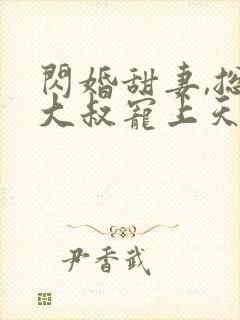 閃婚甜妻,
大叔寵上天
尹香武